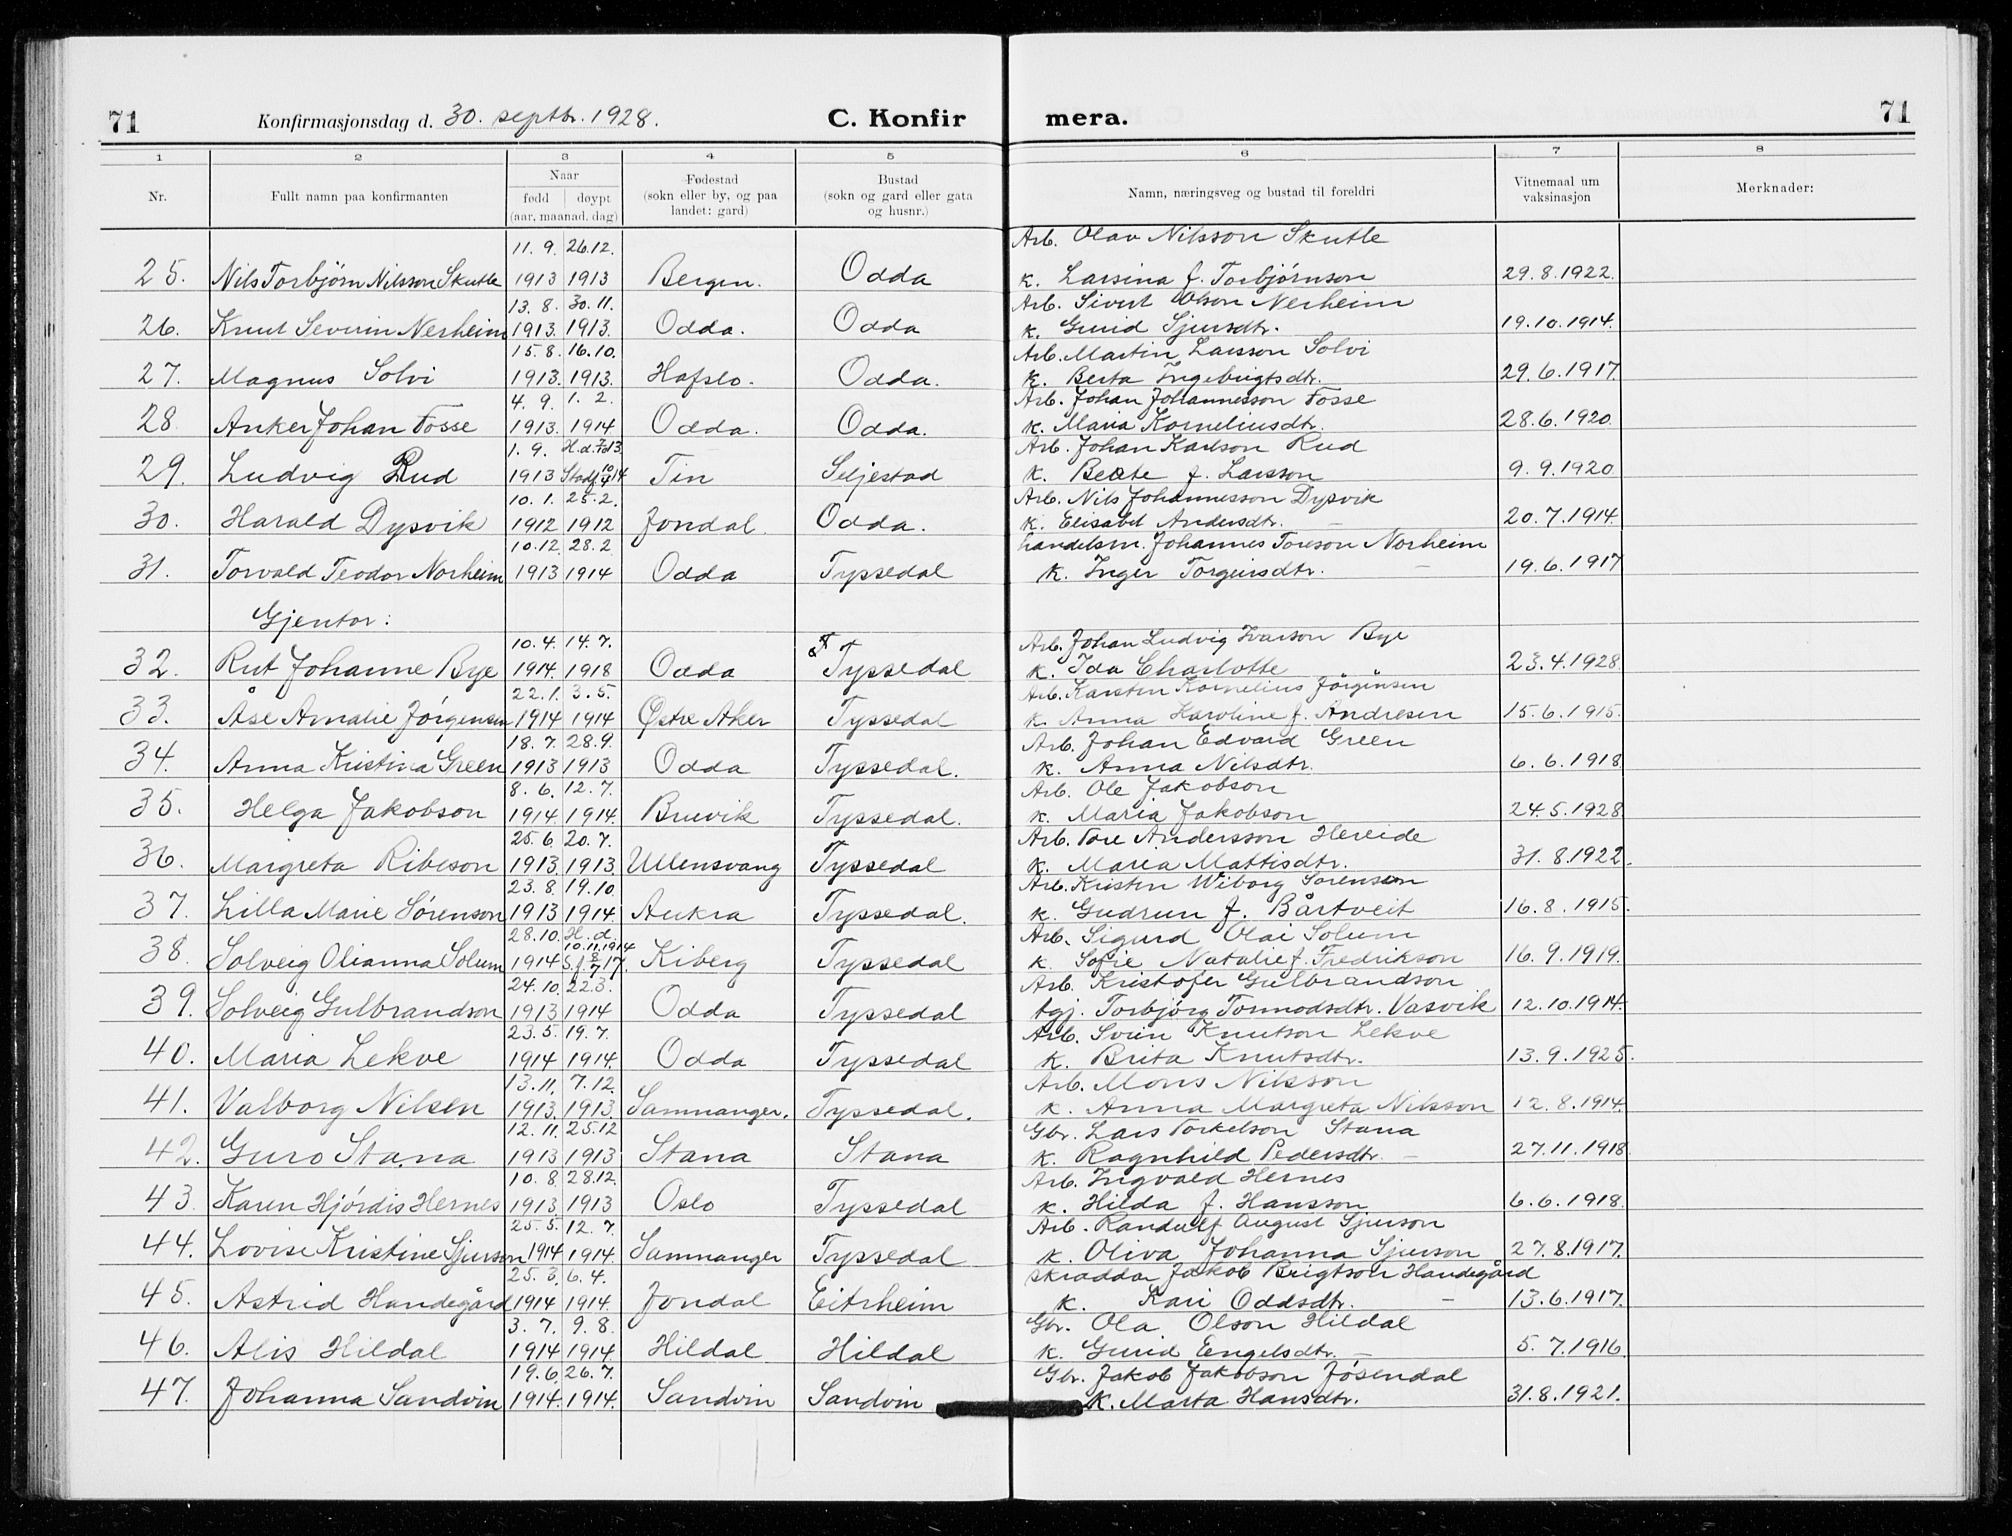 71 Konfirmasjonsdag d. 30. septbr. 1928. C. Konfir mera. 71
1 2 3 4 5 6 7 8
Nr. Fullt namn paa konfirmanten Naar fødd døypt (aar, maanad, dag) Fødestad (sokn eller by, og paa landet: gard) Bustad (sokn og gard eller gata og husnr.) Namn, næringsveg og bustad til foreldri Vitnemaal um vaksinasjon Merknader:
11. 9. 26.12. Arb. Olav Nilsson Skutle
25. Nils Torbjørn Nilsson Skutle 1913 1913 Bergen. Odda k. Larsina f. Torbjørnson 29.8.1922.
13. 8. 30. 11. Arb. Sivert Olson Nerheim
26. Knut Severin Nerheim 1913. 1913. Odda. Odda k. Gunid Sjursdtr. 19.10.1914.
15. 8. 16.10. Arb. Martin Larsson Solvi
27. Magnus Solvi 1913. 1913. Hafslo. Odda. k. Berta Ingebrigtsdtr. 29.6.1917.
4. 9. 1. 2. Arb. Johan Johannesson Fosse
28. Anker Johan Fosse 1913. 1914 Odda. Odda. k. Maria Kornelinsdtr. 28.6.1920.
1. 9. H.d. Arb. Johan Karlson Rud
29. Ludvig Rud 1913 Tin Seljestad k. Beate f. Larsson 9.9.1920
10. 1. 25. 2. Arb. Nils Johannesson Dysvik
30. Harald Dysvik 1912 1912 Jondal. Odda. k. Elisabet Andersdtr. – 20.7.1914.
10.12. 28.2. handelsm. Johannes Toreson Norheim
31. Torvald Teodor Norheim 1913 1914 Odda Tyssedal k. Inger Torgeirsdtr. – 19.6.1917
Gjentor:
10. 4. 14. 7. Arb. Johan Ludvig Ivarson Bye
32. Rut Johanne Bye 1914. 1918 Odda Tyssedal k. Ida Charlotte 23.4.1928
22. 1. 3. 5. Arb. Karsten Kornelius Jörgensen
33. Åse Amalie Jörgensen 1914 1914 Østre Aker Tyssedal k. Anna Karoline f. Andresen 15.6.1915.
18. 7. 28.9. Arb. Johan Edvard Green
34. Anna Kristina Green 1913 1913 Odda Tyssedal. k. Anna Nilsdtr. 6.6.1918
8. 6. 12. 7. Arb. Ole Jakobson
35. Helga Jakobson 1914. 1914. Bruvik Tyssedal. k. Maria Jakobson 24.5.1928
25. 6. 20. 7. Arb. Tore Andersson Hereide
36. Margreta Ribeson 1913. 1913. Ullensvang Tyssedal k. Marea Mattisdtr. 31.8.1922.
23. 8. 19.10. Arb. Kristen Wiborg Sorensen
37. Lilla Marie Sørenson 1913 1914. Aukra Tyssedal. k. Gudrun f. Bårtveit 16.8.1915.
28.10. H. d. 10.11.1914 Arb. Sigurd Olai Solum
38. Solveig Olianna Solum 1914 Kiberg Tyssedal k. Sofie Natalie f. Fredrikson 16.9.1919.
24.10. 22.3. Arb. Kristofer Gulbrandson
39. Solveig Gulbrandson 1913 1914 Odda Tyssedal tgj. Torbjørg Tormodsdtr. Vasvik 12.10.1914.
23.5. 19. 7. Arb. Svein Knutson Lekve
40. Maria Lekve 1914 1914. Odda Tyssedal k. Brita Knutsdtr. 13.9.1925.
13.11. 7.12. Arb. Mons Nilsson
41. Valborg Nilsen 1913. 1913. Samnanger. Tyssedal. k. Anna Margreta Nilsson 12.8.1914.
12. 11. 25.12 Gbr. Lars Torkelson Stana
42. Guro Stana 1913 1913 Stana Stana k. Ragnhild Pedersdtr. – 27.11.1918
10. 8. 28.12. Arb. Ingvald Hernes
43. Karen Hjördis Hernes 1913. 1913 Oslo Tyssedal k. Hilda f. Hansson 6.6.1918.
25. 5. 12. 7. Arb. Randulf August Sjurson
44. Lovise Kristine Sjurson 1914 1914. Samnanger Tyssedal k. Oliva Johanna Sjurson 27.8.1917.
25. 3. 6. 4. skraddar Jakob Brigtson Handegård
45. Astrid Handegård 1914 1914. Jondal Eitrheim k. Kari Oddsdtr. – 13.6.1917.
3. 7. 9. 8. Gbr. Ola Olson Hildal
46. Alis Hildal 1914 1914 Hildal Hildal k. Gunid Engelsdtr. – 5.7.1916.
19.6. 26.7. Gbr. Jakob Jakobson Jösendal
47. Johanna Sandvin 1914. 1914. Sandvin Sandvin k. Marta Hansdtr. 31.8.1921.